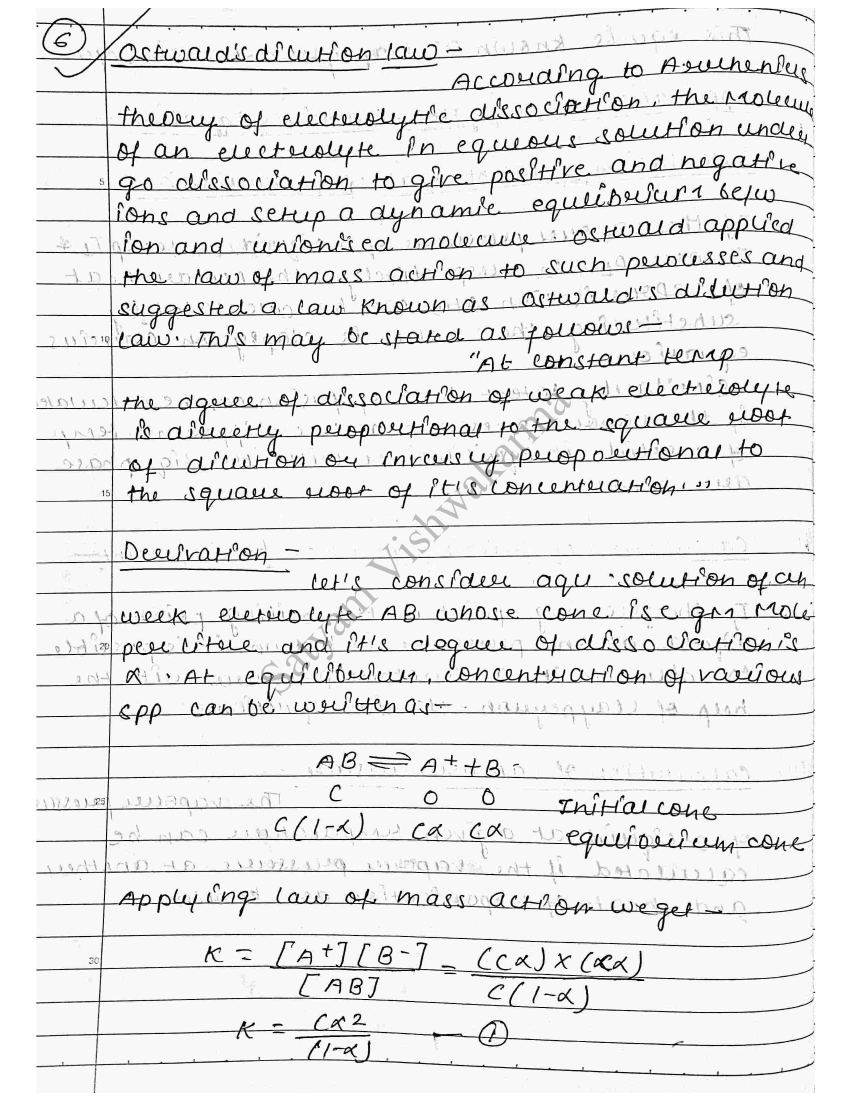 6
Ostwald's dilution law -
According to Arrhenius
theory of electrolytic dissociation, the molecule
of an electrolyte in equeous solution under
5 go dissociation to give positive and negative
ions and setup a dynamic equilibrium betw
ion and unionised molecule. Ostwald applied
the law of mass action to such processes and
suggested a law known as Ostwald's dilution
10 law. This may be stated as follows -
"At constant temp
the dgree of dissociation of weak electrolyte
is directly proportional to the square root
of dilution or inversly proportional to
15 the square root of it's concentration."
Derivation -
Let's consider aqu. solution of an
week eletrolyte AB whose conc is c gm mole
20 per litre and it's degree of dissociation is
α. At equilibrium, concentration of various
spp can be written as -
AB ⇌ A+ + B-
25 C 0 0 Initial conc
C(1-α) Cα Cα equilibrium conc
Applying law of mass action we get -
30 K = [A+][B-] / [AB] = (Cα) × (Cα) / C(1-α)
K = Cα2 / (1-α) — ①
Satyam Vishwakarma